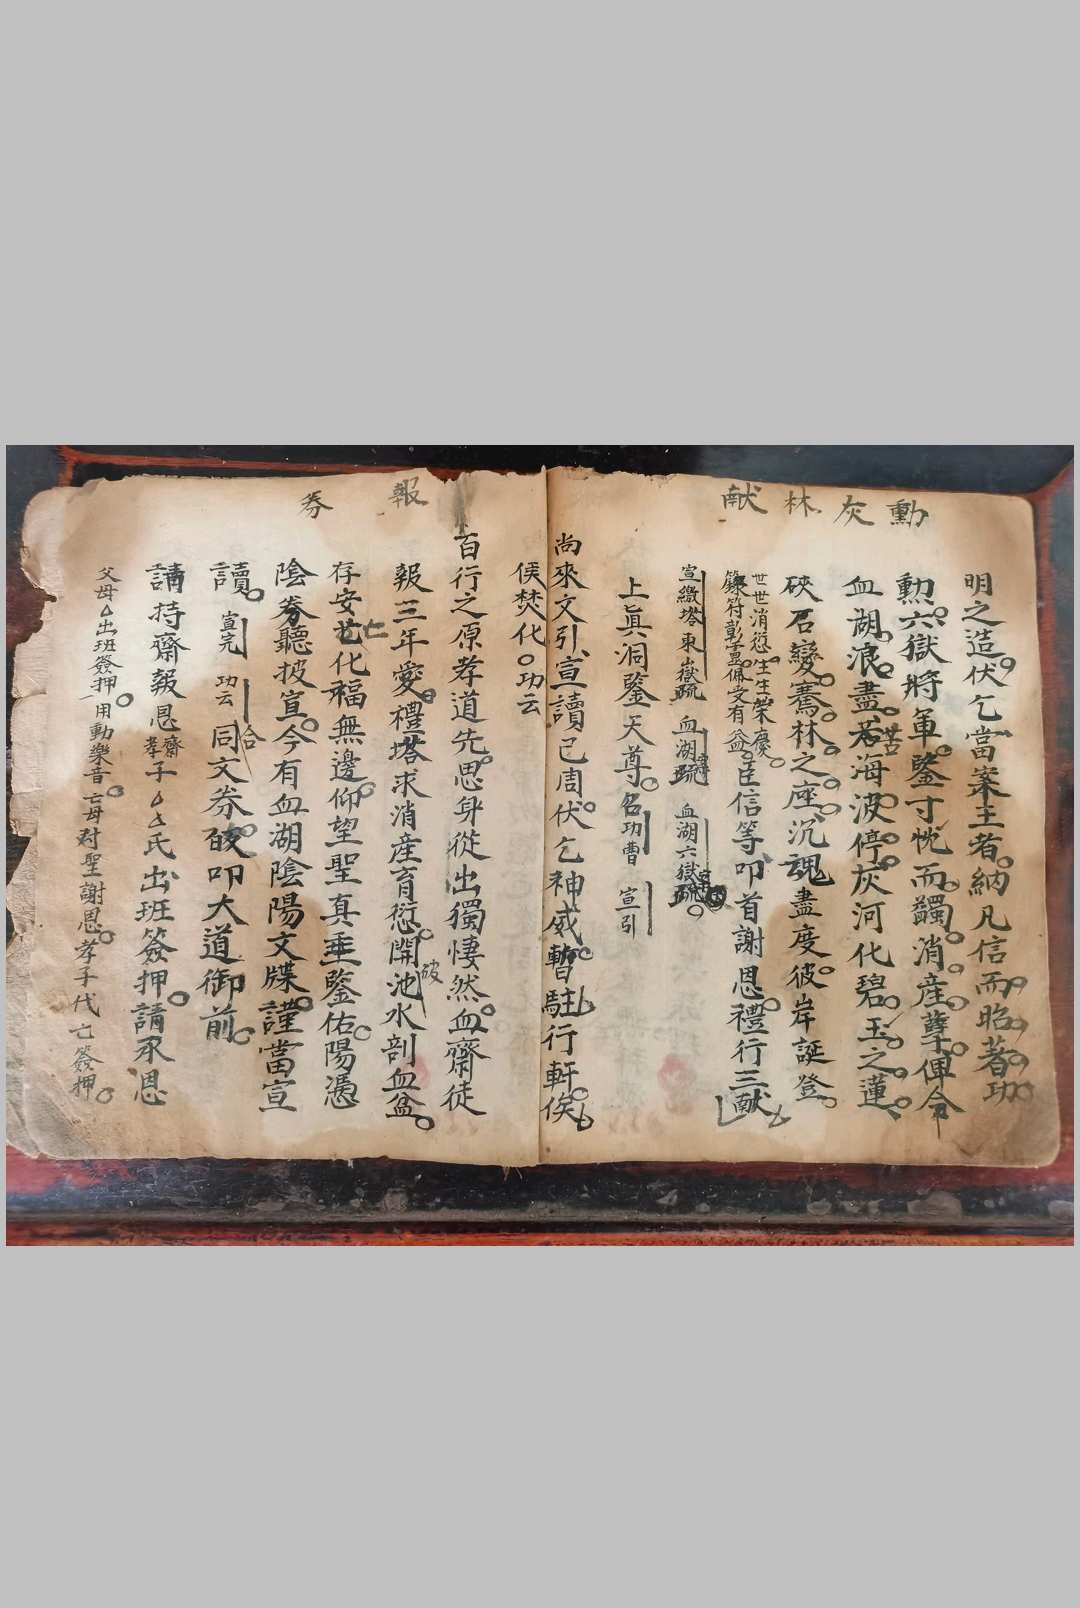 勳灰林献
明之造伏乞當案主者納凡信而昭著功
勲六獄將軍鑒寸忱而蠲消產孽俾令
血湖浪盡苦海波停灰河化碧玉之蓮
硤石變蓦林之座沉魂盡度彼岸誕登
世世消愆生生榮慶
籙符彰善佩文有益臣信等叩首謝恩禮行三献
宣繳塔東嶽疏 血湖疏 血湖六獄疏
上眞洞鑒天尊 名功曹 宣引
尚來文引宣讀已周伏乞神威暫駐行軒俟
俟焚化功云
報券
百行之原孝道先思身從出獨悽然血齋徒
報三年愛禮塔求消產育愆開池水剖血盆
破
存安亡化福無邊仰望聖真垂鑒佑陽憑
陰券聽披宣今有血湖陰陽文牒謹當宣
讀 宣完 功云 同文券 叩大道御前
合
請持齋報恩齋孝子△△氏出班簽押請承恩
父母△出班簽押用動樂音亡母对聖謝恩孝子代亡簽押